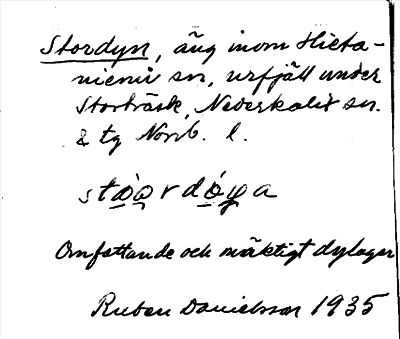 Stordyn, äng inom Hieta-
niemi sn, urfjäll under
Storträsk, Nederkalix sn.
& tg Norrb. l.
Omfattande och mäktigt dylager
Ruben Danielsson 1935